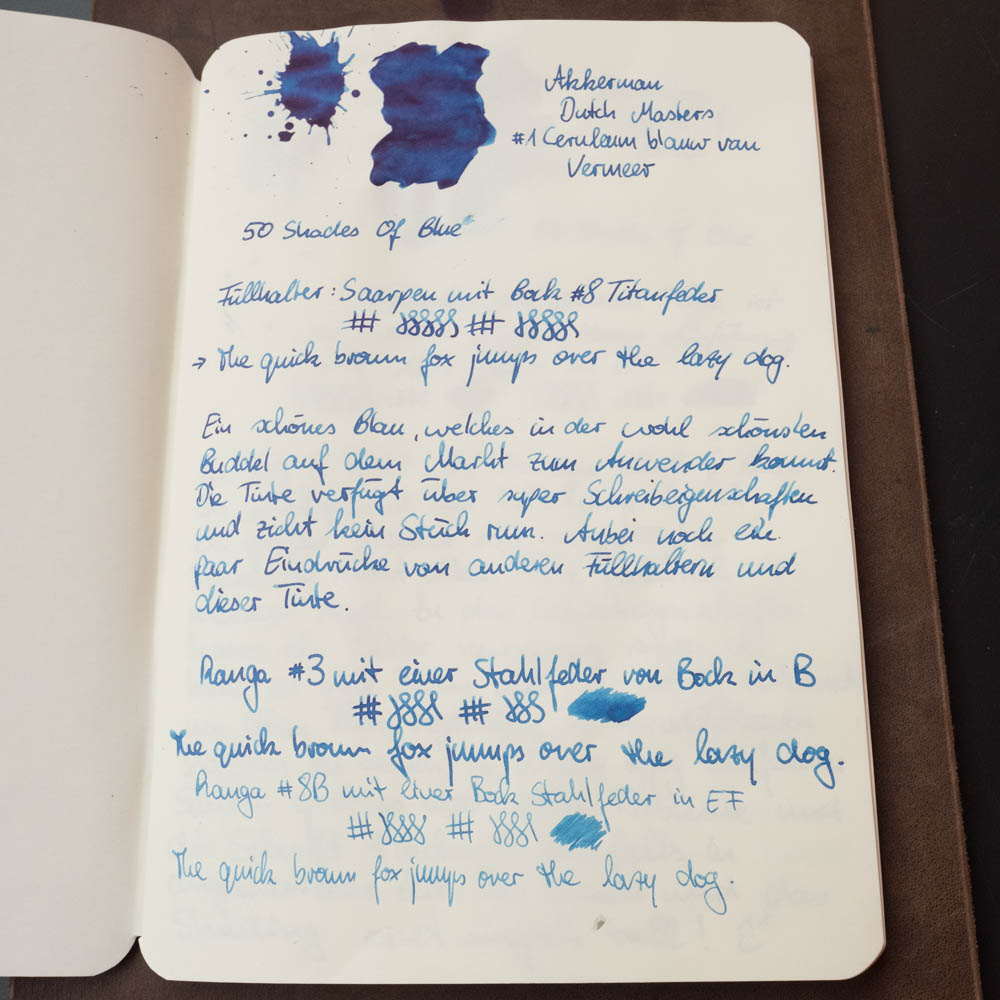 Akkerman
Dutch Masters
#1 Ceruleum blauw van
Vermeer
50 Shades Of Blue
Füllhalter: Saarpen mit Bock #8 Titanfeder
→ The quick brown fox jumps over the lazy dog.
Ein schönes Blau, welches in der wohl schönsten
Buddel auf dem Markt zum Anwender kommt.
Die Tinte verfügt über super Schreibeigenschaften
und zickt kein Stück rum. Anbei noch ein
paar Eindrücke von anderen Füllhaltern und
dieser Tinte.
Ranga #3 mit einer Stahlfeder von Bock in B
The quick brown fox jumps over the lazy dog.
Ranga #8B mit einer Bock Stahlfeder in EF
The quick brown fox jumps over the lazy dog.